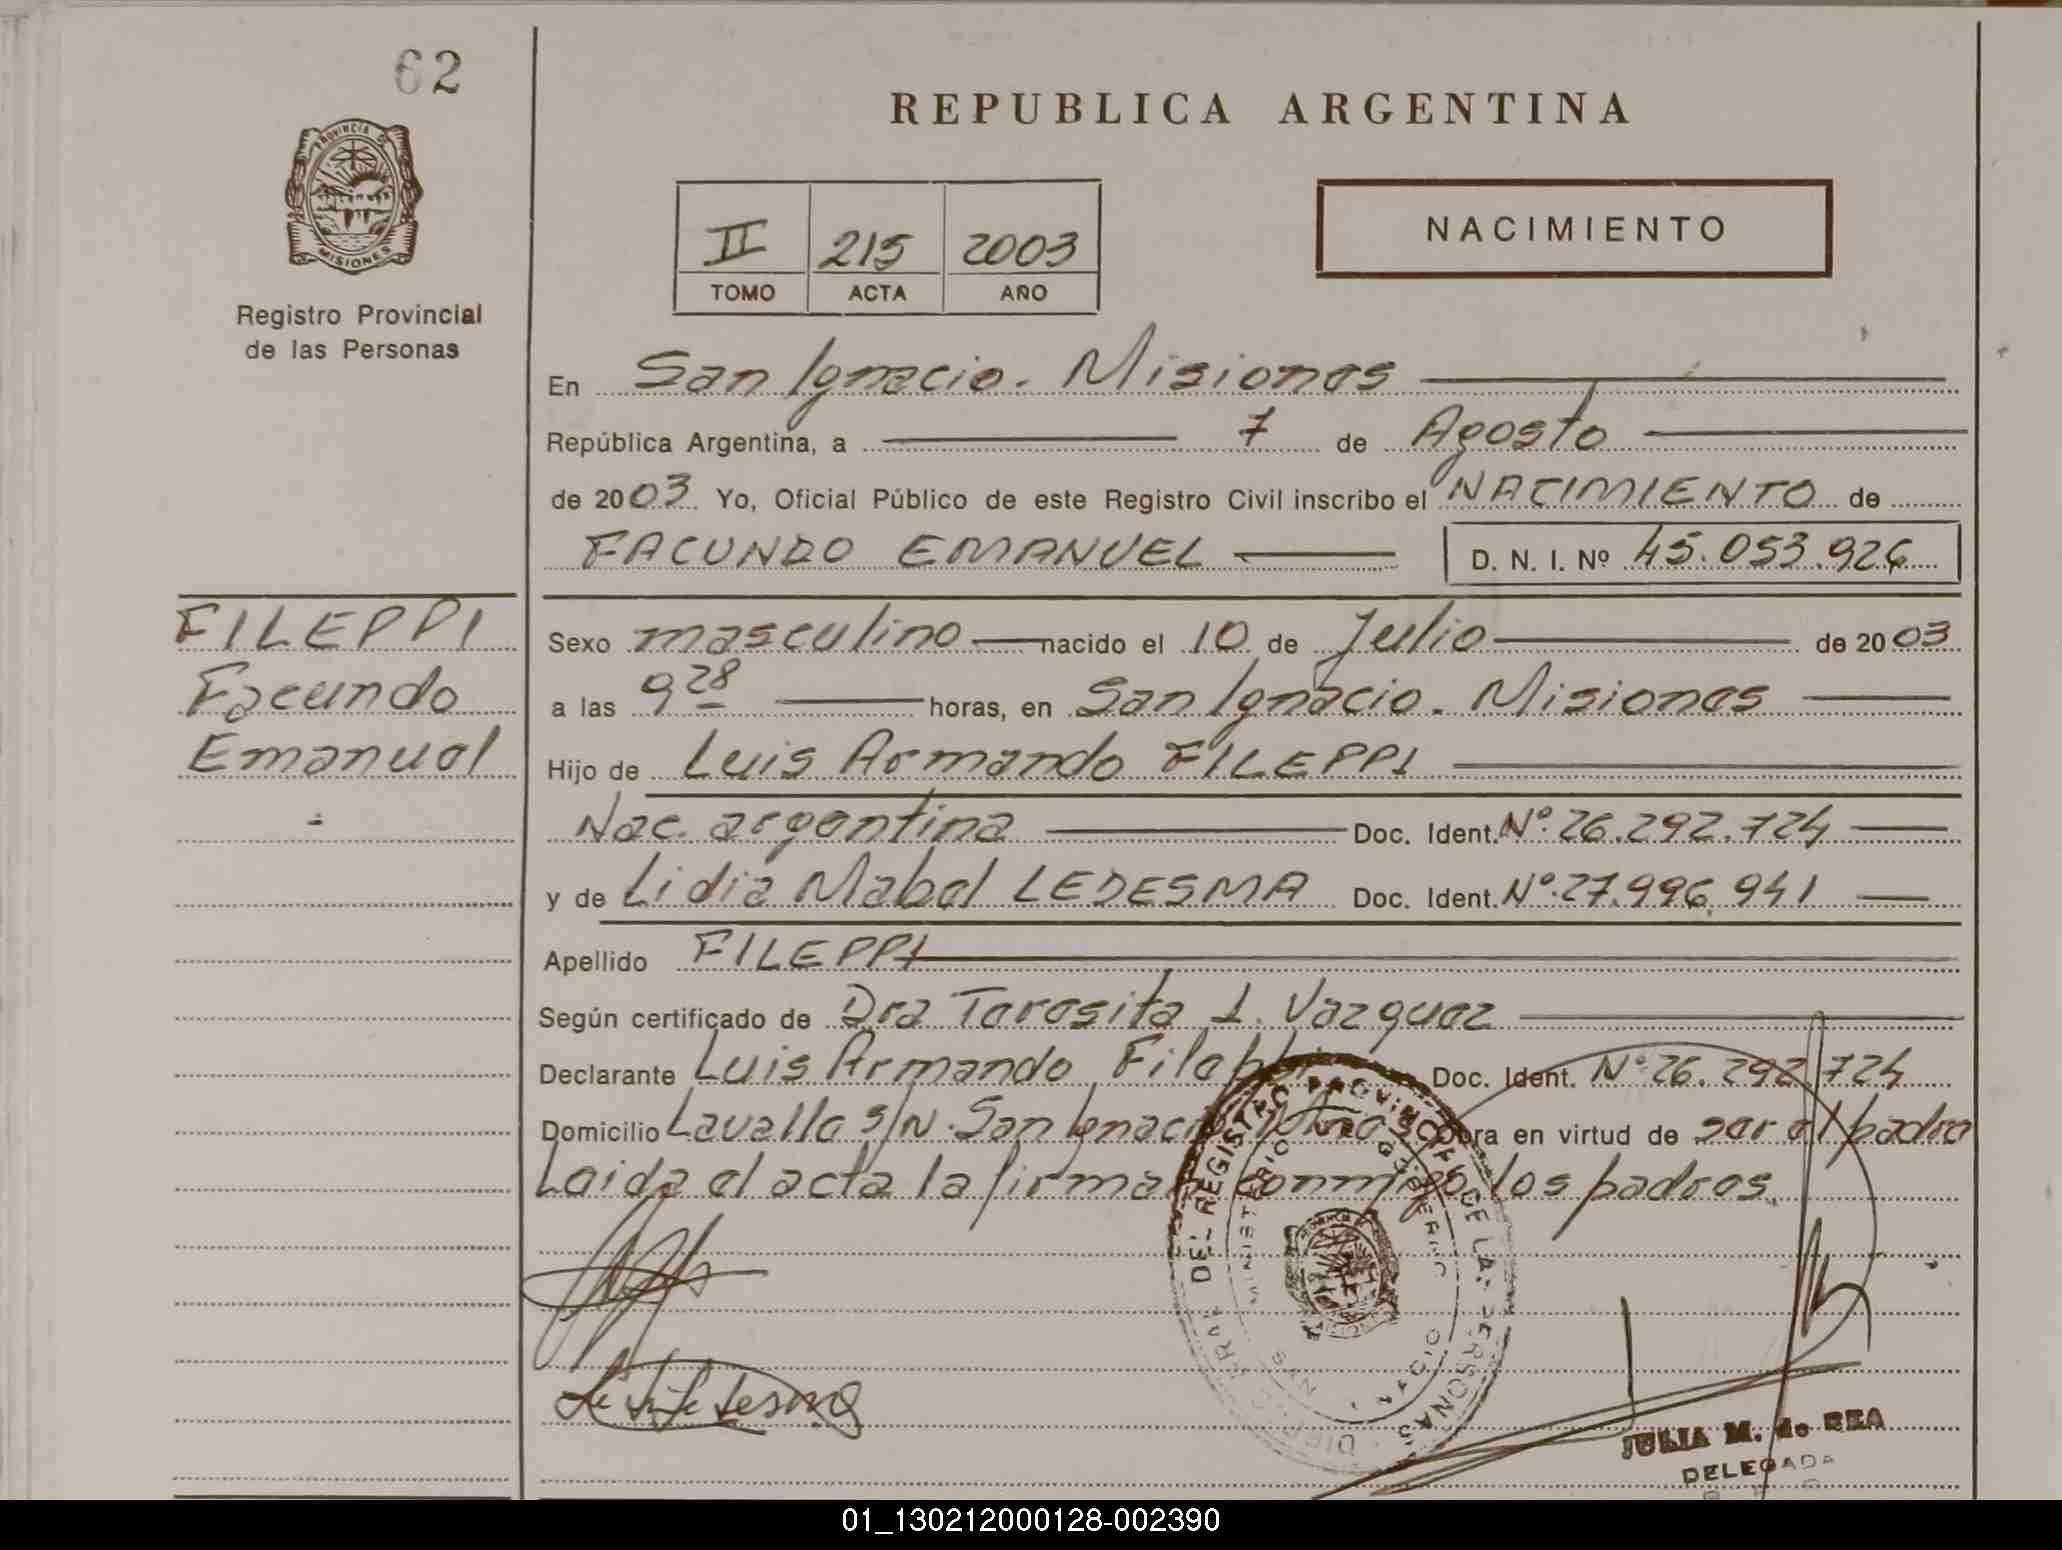 62
PROVINCIA DE
MISIONES
Registro Provincial
de las Personas
REPUBLICA ARGENTINA
II 215 2003
TOMO ACTA AÑO
NACIMIENTO
En San Ignacio. Misiones
República Argentina, a 7 de Agosto
de 2003 Yo, Oficial Público de este Registro Civil inscribo el NACIMIENTO de
FACUNDO EMANUEL D. N. I. Nº 45.053.926
FILEPPI
Facundo
Emanuel
Sexo masculino nacido el 10 de Julio de 2003
a las 9 28 horas, en San Ignacio. Misiones
Hijo de Luis Armando FILEPPI
Nac. argentina Doc. Ident. Nº 26.292.724
y de Lidia Mabel LEDESMA Doc. Ident. Nº 27.996.941
Apellido FILEPPI
Según certificado de Dra Teresita I. Vazquez
Declarante Luis Armando Fileppi Doc. Ident. Nº 26.292.724
Domicilio Lavalle s/N. San Ignacio Obra en virtud de ser el padre
Leida el acta la firman conmigo los padres.
DEL REGISTRO PROVINCIAL DE LAS PERSONAS
MINISTERIO DE GOBIERNO
Ledesma
JULIA M. de REA
DELEGADA
01_130212000128-002390